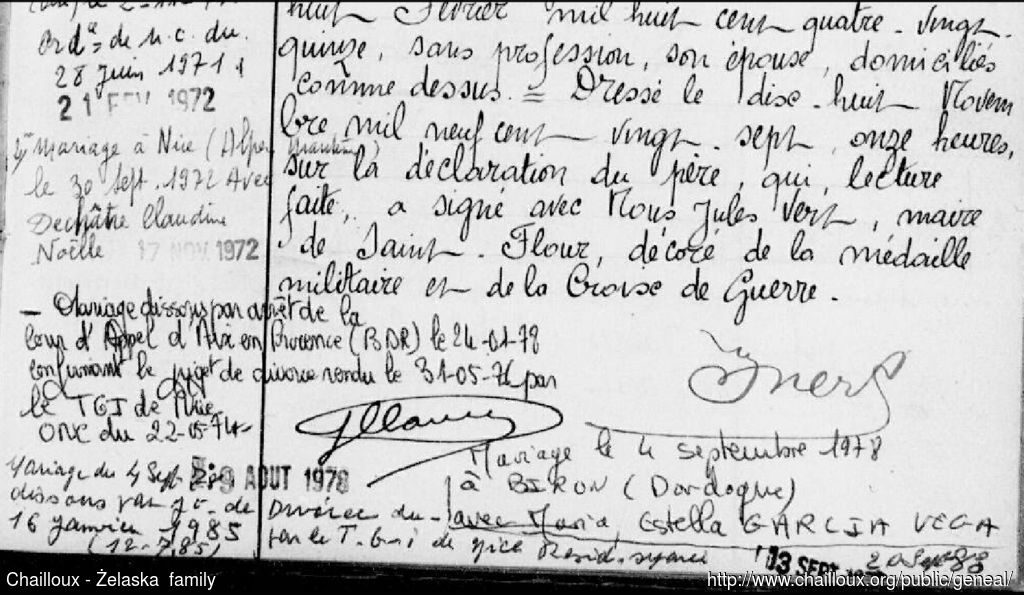 Ord ce de n.c. du
28 Juin 1971
21 FEV 1972
Mariage à Nice (Alpes Maritimes)
le 30 Sept. 1972 Avec
Dechâtre Claudine
Noëlle 17 NOV 1972
— Mariage dissous par arrêt de la
Cour d'Appel d'Aix en Provence (BDR) le 24-01-78
confirmant le jugt de divorce rendu le 31-05-76 par
le TGI de Nice
ONC du 22-05-74
Mariage du 4 Sept
dissous par jt. de
16 Janvier 1985
(12-7.85)
huit Février mil huit cent quatre-vingt-
quinze, sans profession, son épouse, domiciliés
comme dessus. = Dressé le dix-huit Novem
bre mil neuf cent vingt-sept, onze heures,
sur la déclaration du père, qui, lecture
faite, a signé avec Nous Jules Vert, maire
de Saint-Flour, décoré de la médaille
militaire et de la Croix de Guerre.
Mariage le 4 septembre 1978
à BIRON (Dordogne)
avec Maria Estella GARCIA VEGA
AOUT 1978
Divorcée du
par le T. de Nice
13 SEPT
Chailloux - Želaska family
http://www.chailloux.org/public/geneal/